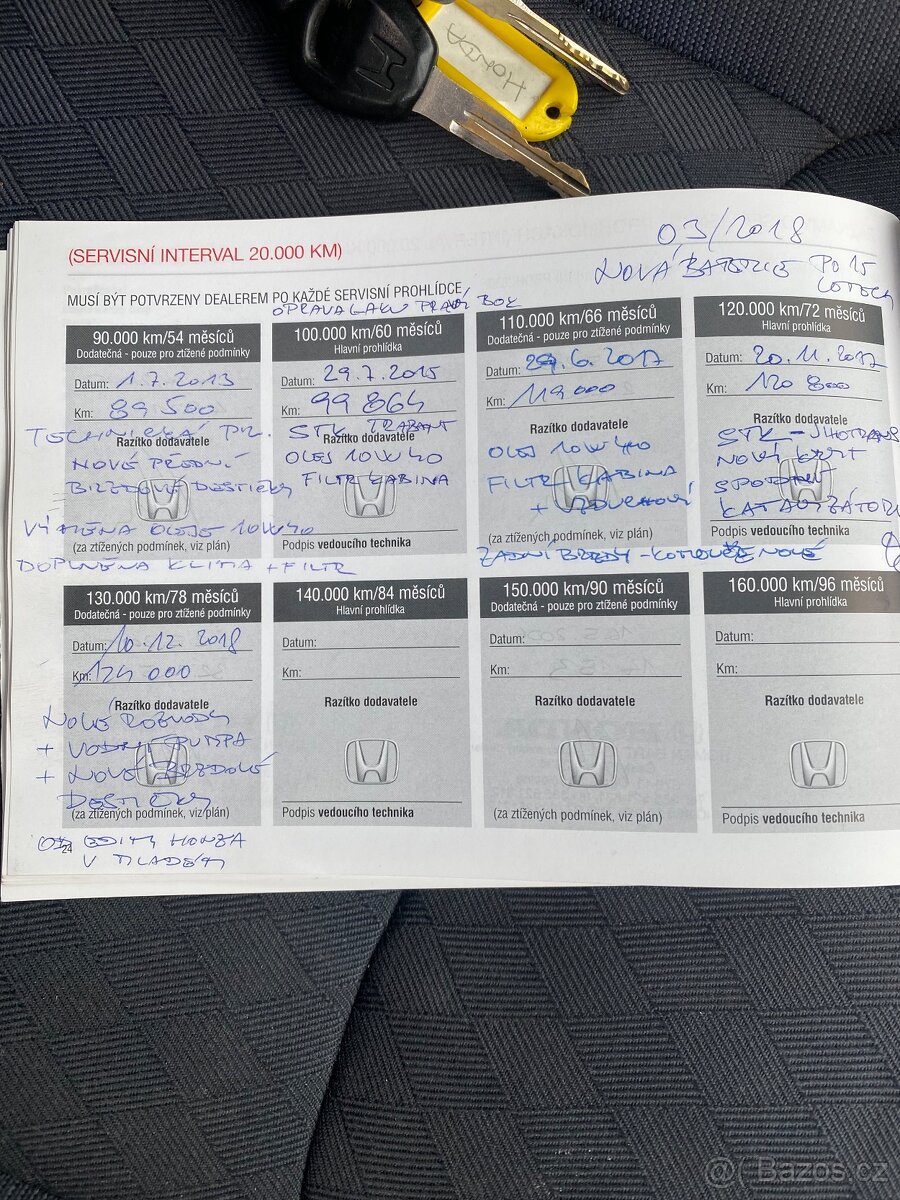 HONDA
(SERVISNÍ INTERVAL 20.000 KM)
03/2018
NOVÁ BATERIE PO 15
LETECH
MUSÍ BÝT POTVRZENY DEALEREM PO KAŽDÉ SERVISNÍ PROHLÍDCE
OPRAVA LAKU PRAVÝ BOK
90.000 km/54 měsíců
Dodatečná - pouze pro ztížené podmínky
Datum: 1.7.2013
Km: 89 500
Razítko dodavatele
TECHNICKÁ PR.
NOVÉ PŘEDNÍ
BRZDOVÉ DESTIČKY
VÝMĚNA OLEJE 10W40
(za ztížených podmínek, viz plán)
DOPLNĚNA KLIMA + FILTR
100.000 km/60 měsíců
Hlavní prohlídka
Datum: 29.7.2015
Km: 99 864
Razítko dodavatele
STK TRABANT
OLEJ 10W40
FILTR KABINA
Podpis vedoucího technika
110.000 km/66 měsíců
Dodatečná - pouze pro ztížené podmínky
Datum: 29.6.2017
Km: 119 000
Razítko dodavatele
OLEJ 10W40
FILTR KABINA
+ VZDUCHOVÝ
(za ztížených podmínek, viz plán)
ZADNÍ BRZDY - KOTOUČE NOVÉ
120.000 km/72 měsíců
Hlavní prohlídka
Datum: 20.11.2017
Km: 120 800
Razítko dodavatele
STK -
NOVÝ KRYT
SPODNÍ
KATALYZÁTORU
Podpis vedoucího technika
130.000 km/78 měsíců
Dodatečná - pouze pro ztížené podmínky
Datum: 10.12.2018
Km: 124 000
Razítko dodavatele
NOVÉ ROZVODY
+ VODNÍ PUMPA
+ NOVÉ BRZDOVÉ
DESTIČKY
(za ztížených podmínek, viz plán)
HONZA
V
24
140.000 km/84 měsíců
Hlavní prohlídka
Datum:
Km:
Razítko dodavatele
Podpis vedoucího technika
150.000 km/90 měsíců
Dodatečná - pouze pro ztížené podmínky
Datum:
Km:
Razítko dodavatele
(za ztížených podmínek, viz plán)
160.000 km/96 měsíců
Hlavní prohlídka
Datum:
Km:
Razítko dodavatele
Podpis vedoucího technika
@ Bazos.cz